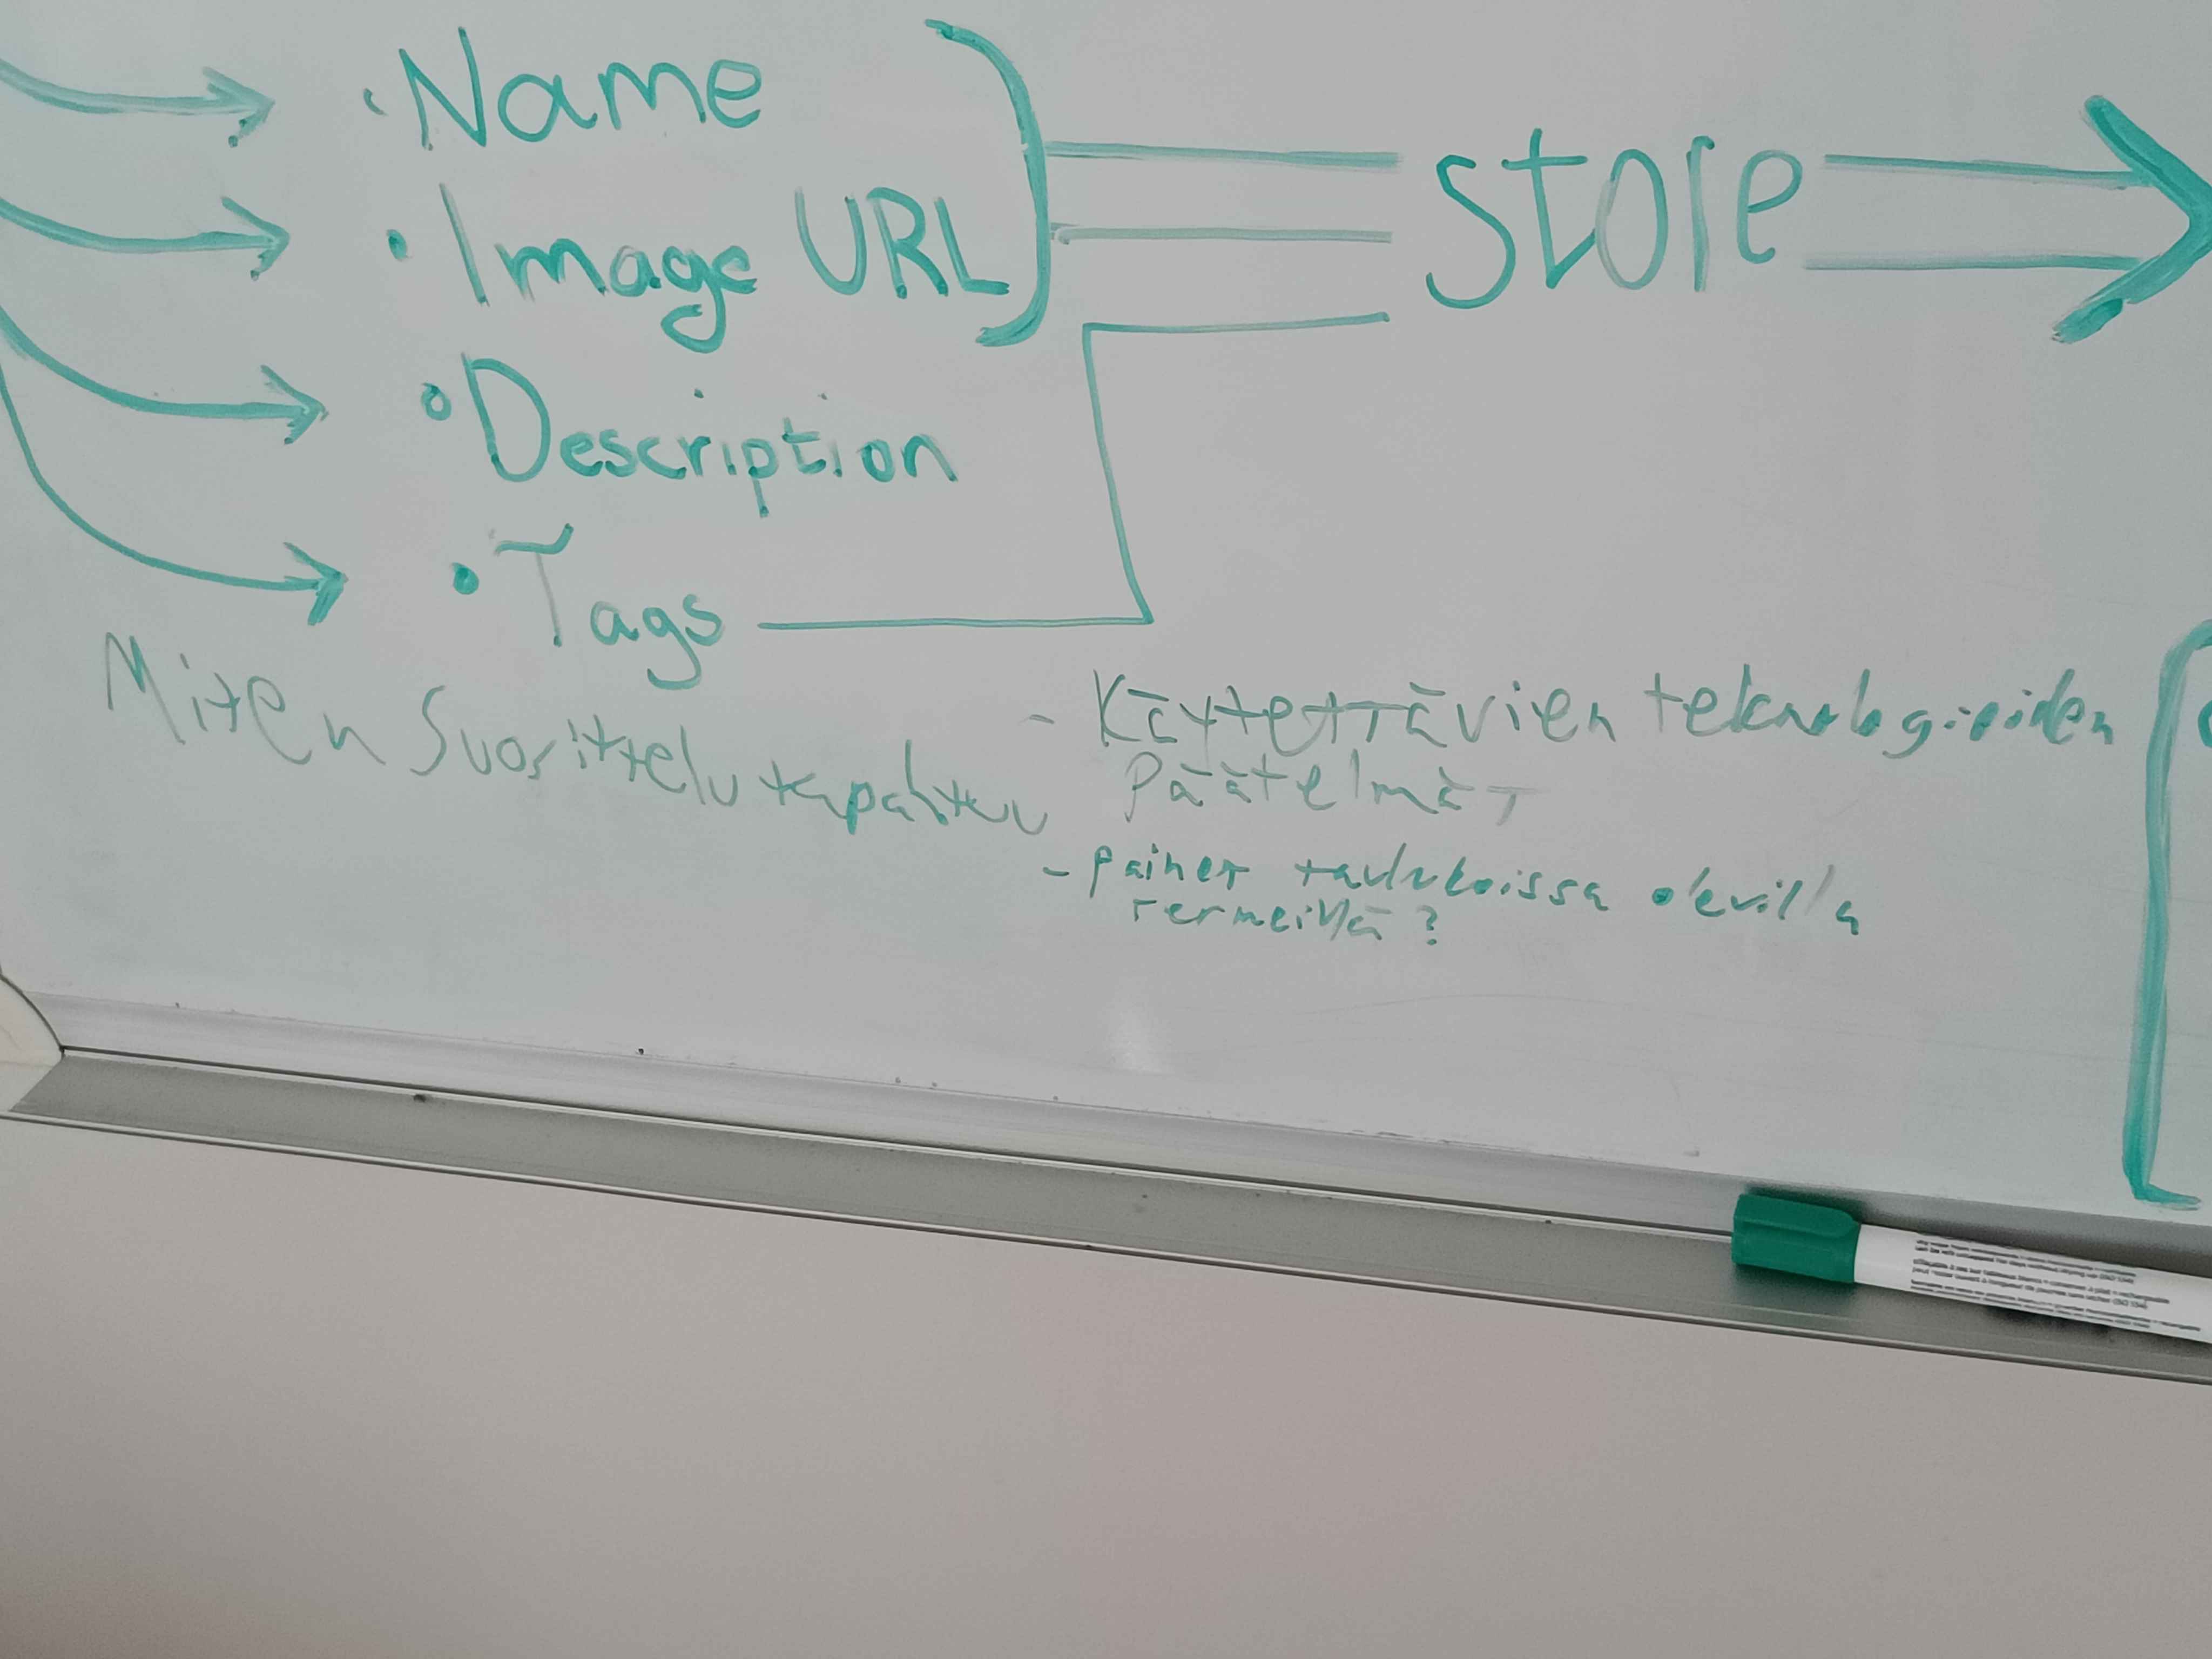 • Name
• Image URL
store
• Description
• Tags
Miten Suorittelu tapahtuu
- Käytettävien teknologioiden
päätelmät
- painot taulukoissa olevilla
termeillä?